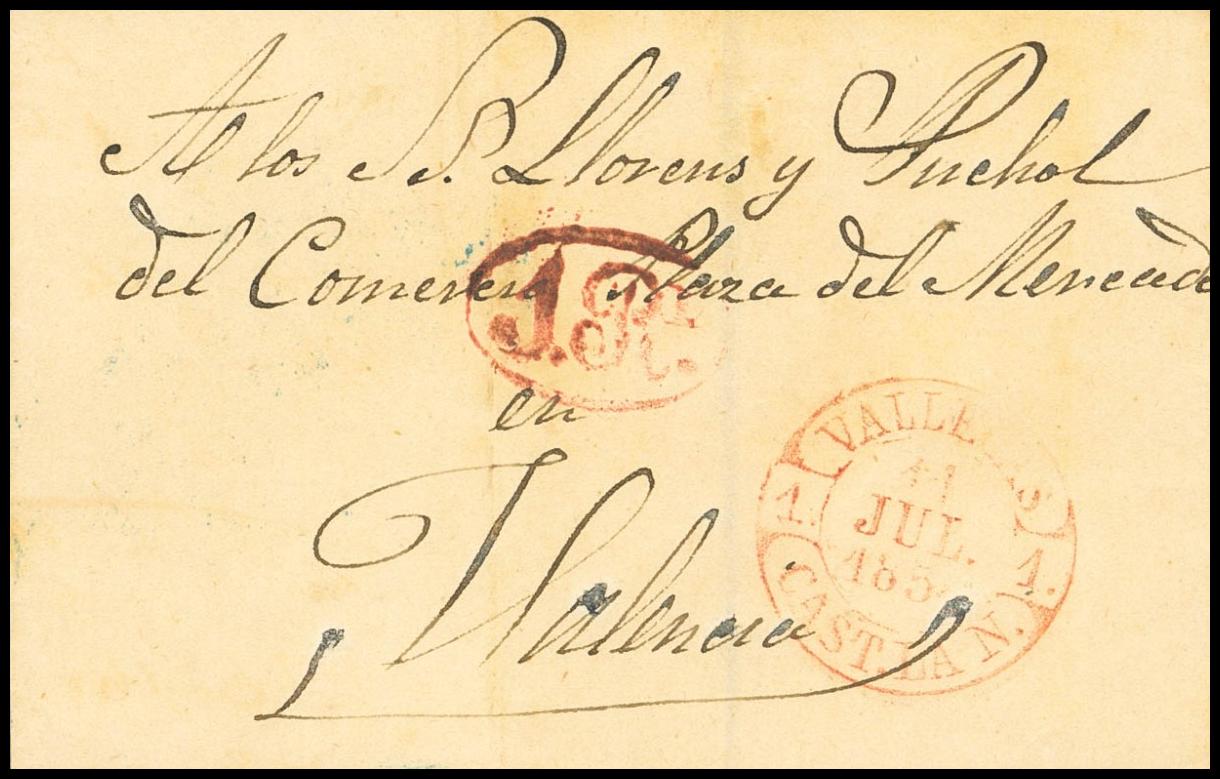 A los S. S. Llorens y Puchol
del Comercio Plaza del Mercado
1. R.
en
Valencia
VALLE
11
JUL.
185
1. 1.
CAST. LA N.